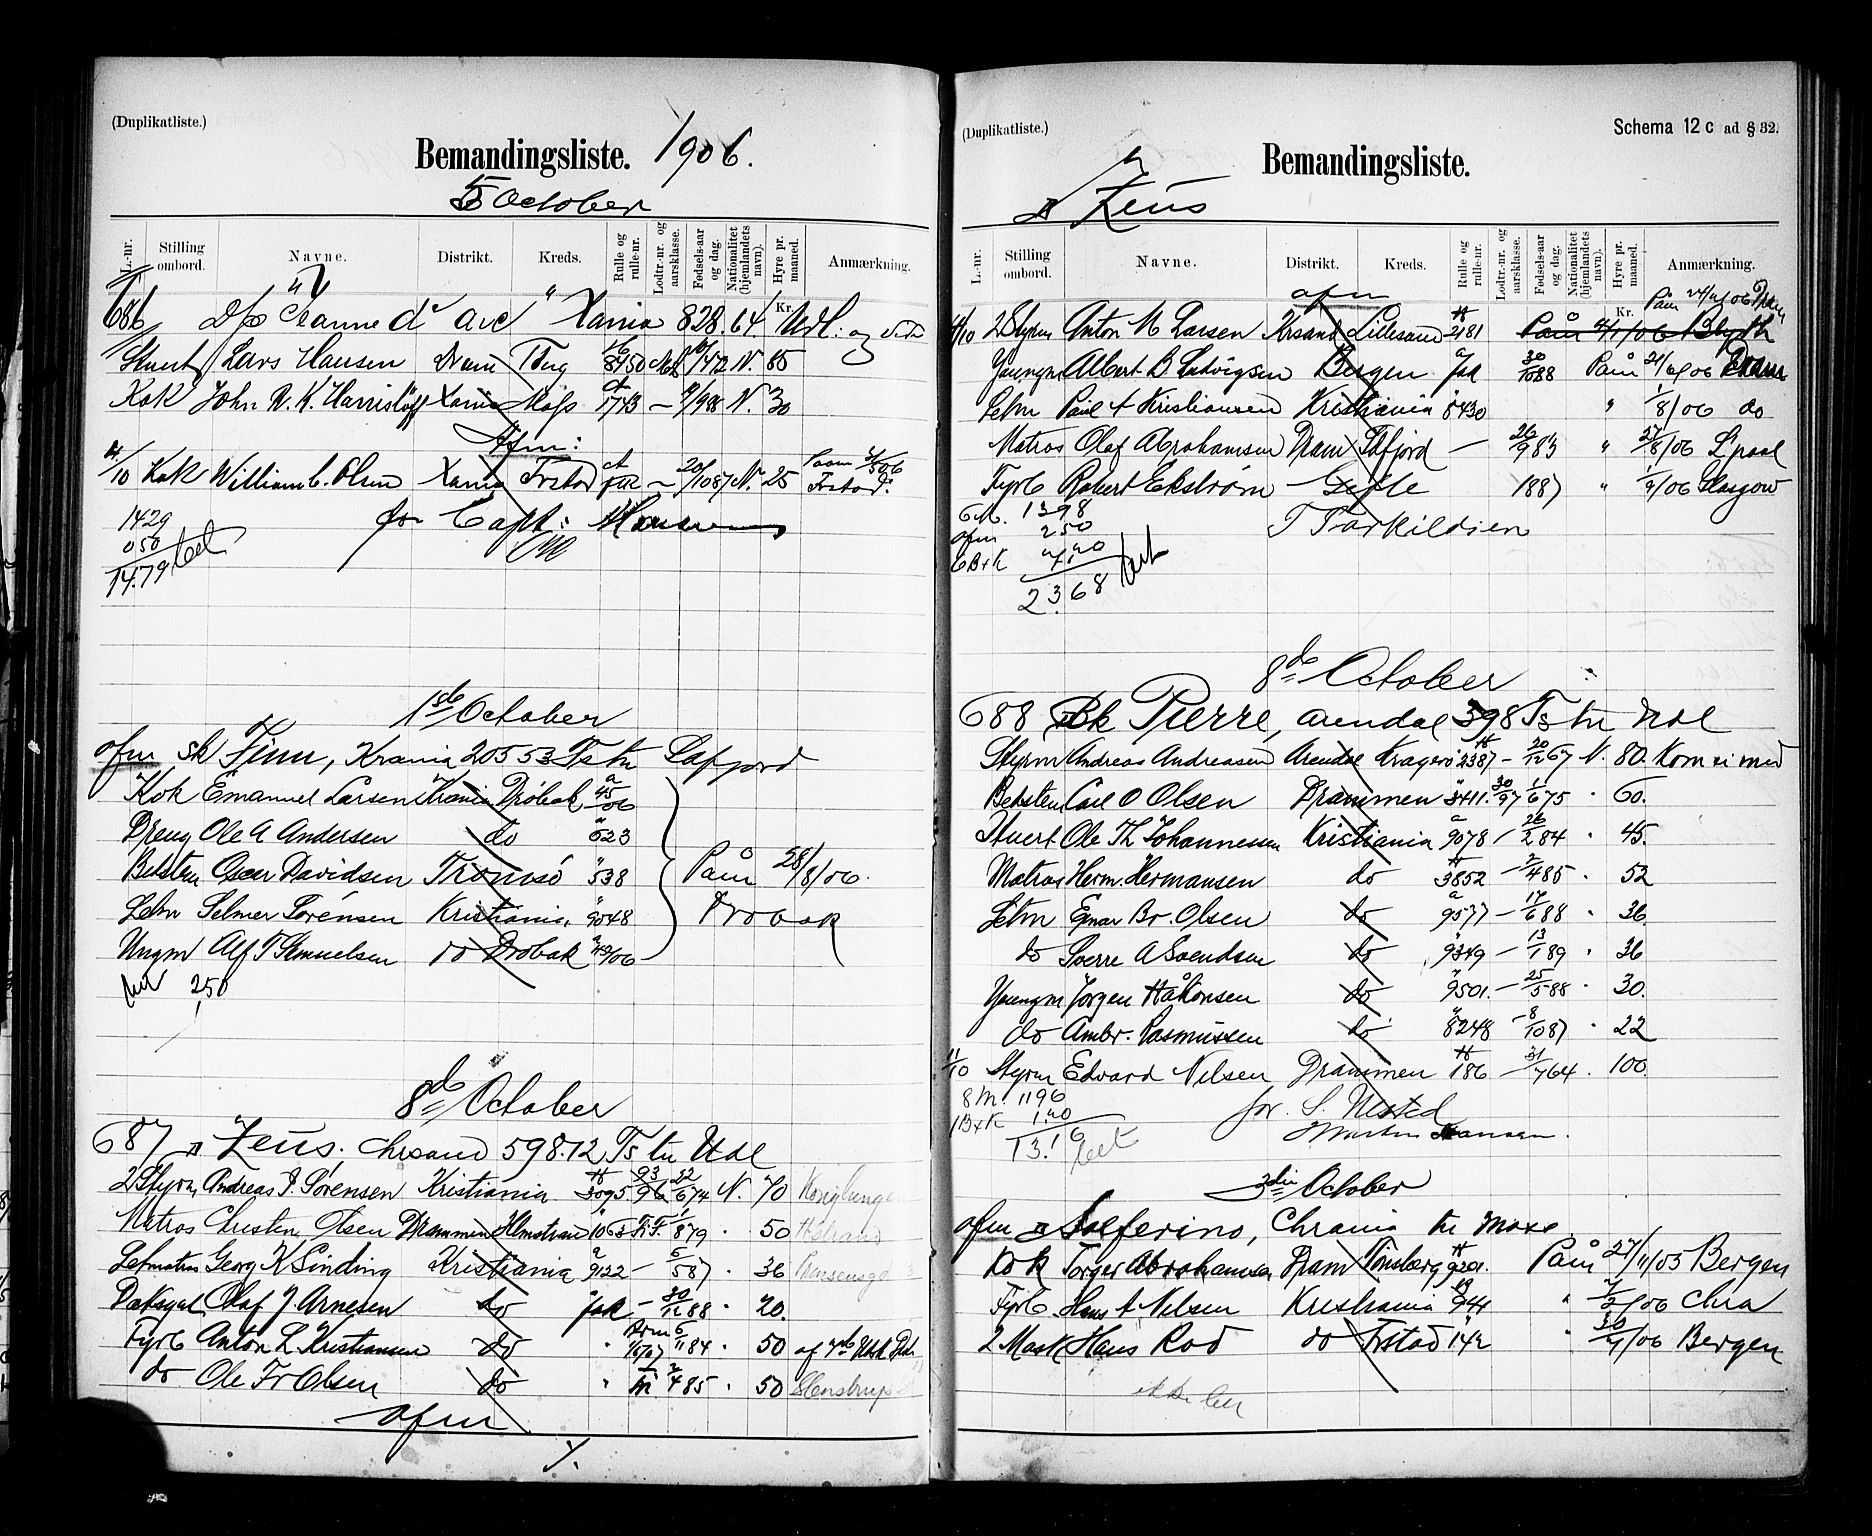 (Duplikatliste.)
Bemandingsliste. 1906.
5 October
L.-nr. Stilling ombord. Navne. Distrikt. Kreds. Rulle og rulle-nr. Lodtr.-nr. og aarsklasse. Fødsels-aar og dag. Nationalitet (hjemlandets navn). Hyre pr. maaned. Anmærkning.
Kr.
686 Jeanne d'arc Xania 828.64 Udl: og vide
Stuert Lars Hansen Dram Tbrg 8450 N. 85
Kok John R. K. Xania Moss 1743 N. 30
Afm:
4/10 Kok William C. Olsen Xania Frstad 20/1087 N. 25 Paam 3/506 Frstad
1429
050
1479 bet
for Capt: Hansen
1ste October
afm sk Finn, Krania 205 53 Ts tr Laxfjord
Kok Emanuel Larsen Krania Drøbak a 45/06
Dreng Ole A Andersen do 623
Bedstem Oscar Davidsen Tromsø " 538 Påm 28/8/06.
Letm Selmer Sørensen Kristiania " 9048 Drøbak
Ungm Alf T Samuelsen do Drøbak a 49/06
250
8de October
687 Zeus. Chrsand 598.12 Ts tr Udl
2 Styrm Andreas P. Sørensen Kristiania 3095 93/96 22/674 N. 70
Matros Christen Olsen Drammen Holmstrand 1063 879 50
Letmatros Georg K Sinding Kristiania a 9122 - 5/587 36
Dæksgut Olaf J. Arnesen do Jak - 30/1288 20.
Fyrb Anton L. Kristiansen do " 16/07 5/1184 50
do Ole Fr Olsen do " 2/485 50
afm
(Duplikatliste.)
Schema 12 c ad § 32.
Bemandingsliste.
Zeus
L.-nr. Stilling ombord. Navne. Distrikt. Kreds. Rulle og rulle-nr. Lodtr.-nr. og aarsklasse. Fødsels-aar og dag. Nationalitet (hjemlandets navn). Hyre pr. maaned. Anmærkning.
Kr.
afm
2 Styrm Anton M Larsen Krsand Lillesand 2181 Påm Blyth
Youngm Albert B Ludvigsen Bergen Jak 30/1088 Påm 06 Dram
Letm Paul A Kristiansen Kristiania 8430 " 1/8/06 do
Matros Olaf Abrahamsen Dram - 26/983 " 27/8/06 L'pool
Fyrb Robert Ekstrøm - Gefle 1887 " 1/9/06 Glasgow
6 M. 1398
afm 250
6 B+K
2368 bet
T Torkildsen
8de October
688 Bk Pierre, Arendal 398 Ts tr Udl
Styrm Andreas Andreasen Arendal Kragerø 2387 - 20/1267 N. 80. Kom ei med
Bedstem Carl O Olsen Drammen 3411. 30/97 1/675 60.
Stuert Ole Th Johannessen Kristiania a 9078 26/284 45.
Matros Herm. Hermansen do 3852 - 2/485 52
Letm Ejnar Br. Olsen do a 9577 - 17/688 36.
do Sverre A Svendsen do " 9349 - 13/189 36
Youngm Jørgen Håkonsen do " 9501. - 25/588 30.
do Ambr. Rasmussen do " 8248 - 8/1087 22
11/10 Styrm Edvard Nilsen Drammen 186 - 31/764 100
8 M. 1196
1 B+K 1.20
13.16 bet
for. S. Ulsted
Martin Hansen.
3die October
afm Solferino, Chrania tr Moss
Kok Torger Abrahamsen Dram Tønsberg 9201. Påm 27/11/05 Bergen
Fyrb Hans A Nilsen Kristiania 944 " 06 Chra
2 Mask Hans Rod do Frstad 142 " 30/4/06 Bergen
ikke bet